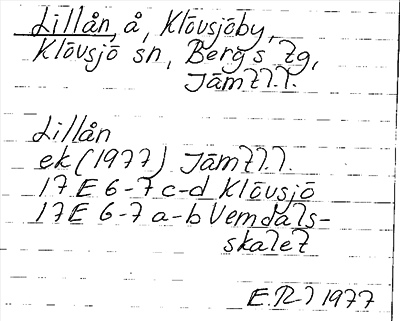 Lillån, å, Klövsjöby,
Klövsjö sn, Bergs tg,
Jämtl.l.
Lillån
ek (1977) Jämtl.l.
17 E 6-7 c-d Klövsjö
17 E 6-7 a-b Vemdals-
skalet
1977